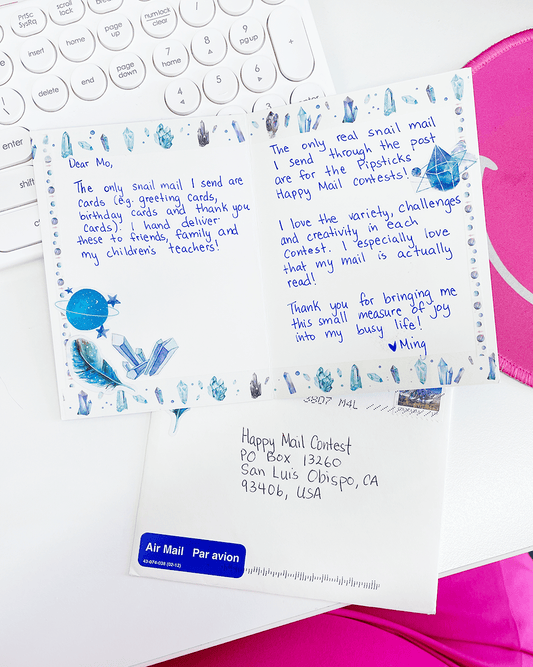 PrtSc
SysRq
scroll
lock
insert
home
page
up
num lock
clear
delete
end
page
down
7
home
8
9
pg up
4
5
6
+
enter
shift
Dear Mo,
The only snail mail I send are
cards (eg. greeting cards,
birthday cards and thank you
cards). I hand deliver
these to friends, family and
my children's teachers!
The only real snail mail
I send through the post
are for the Pipsticks
Happy Mail contests!
I love the variety, challenges
and creativity in each
contest. I especially love
that my mail is actually
read!
Thank you for bringing me
this small measure of joy
into my busy life!
♥Ming
3807 M4L
Happy Mail Contest
PO Box 13260
San Luis Obispo, CA
93406, USA
Air Mail Par avion
43-074-038 (02-12)